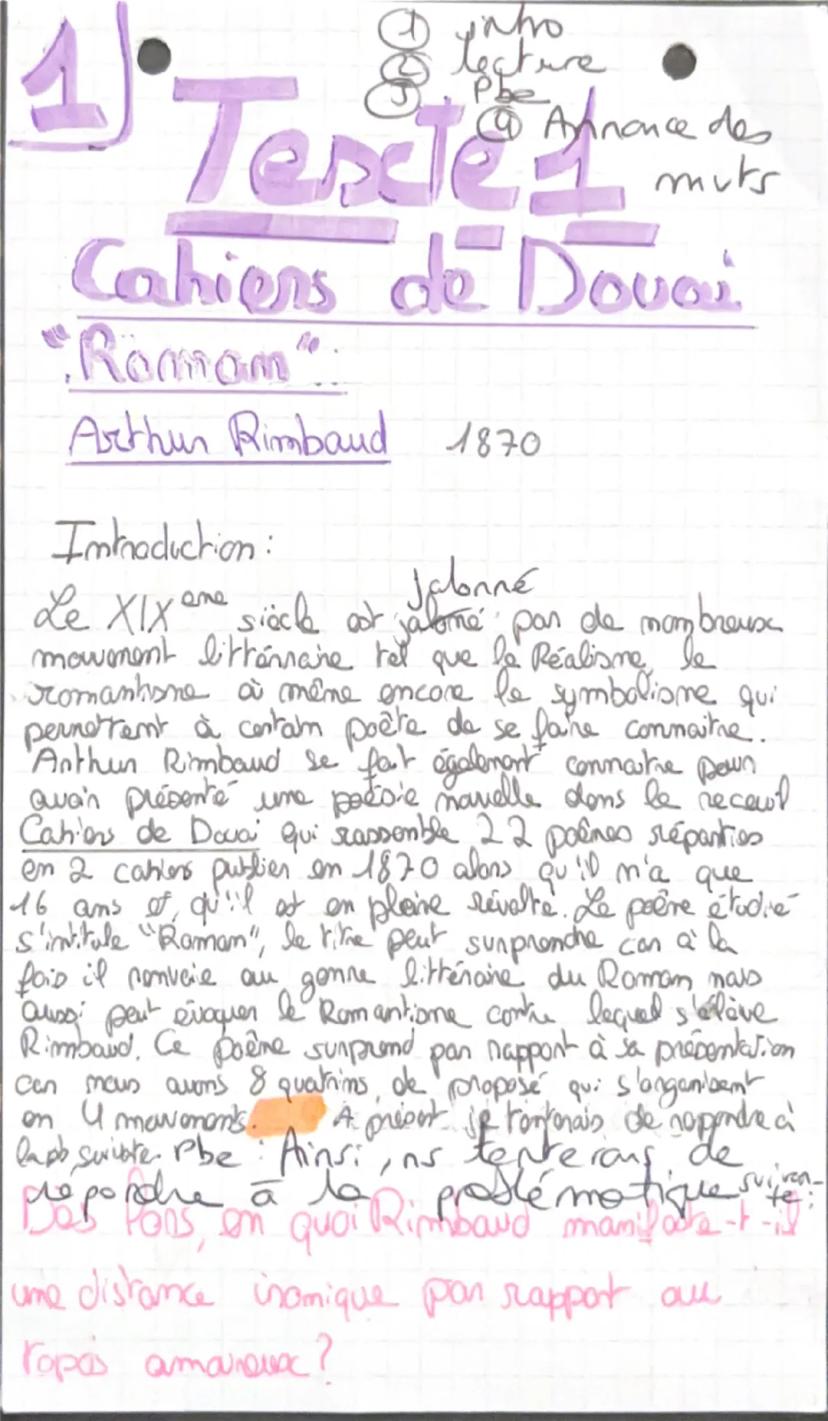 1)
① intro
② lecture
③ Pbe
④ Annonce des
mvts
Texte 1
Cahiers de Douai
"Roman" :
Arthur Rimbaud 1870
Introduction :
jalonné
Le XIX eme siècle est jalonné par de nombreux
mouvement littérraire tel que le Réalisme, le
romantisme où même encore le symbolisme qui
permettent à certain poète de se faire connaitre.
Arthur Rimbaud se fait également connaitre pour
avoir présenté une poésie nouvelle dans le receuil
Cahiers de Douai qui rassemble 22 poèmes réparties
en 2 cahiers publier en 1870 alors qu'il n'a que
16 ans et, qu'il est en pleine révolte. Le poème étudié
s'intitule "Roman", le titre peut surprendre car à la
fois il renvoie au genre littéraire du Roman mais
aussi peut évoquer le Romantisme contre lequel s'élève
Rimbaud. Ce poème surprend par rapport à sa présentation
car nous avons 8 quatrins, de proposé qui s'organisent
en 4 mouvements. A présent je tenterais de reppndre à
la pb suivate. Pbe : Ainsi, ns tenterons de
répondre à la problématique suivante :
Dès lors, en quoi Rimbaud manifeste-t-il
une distance ironique par rapport au
topos amoureux ?